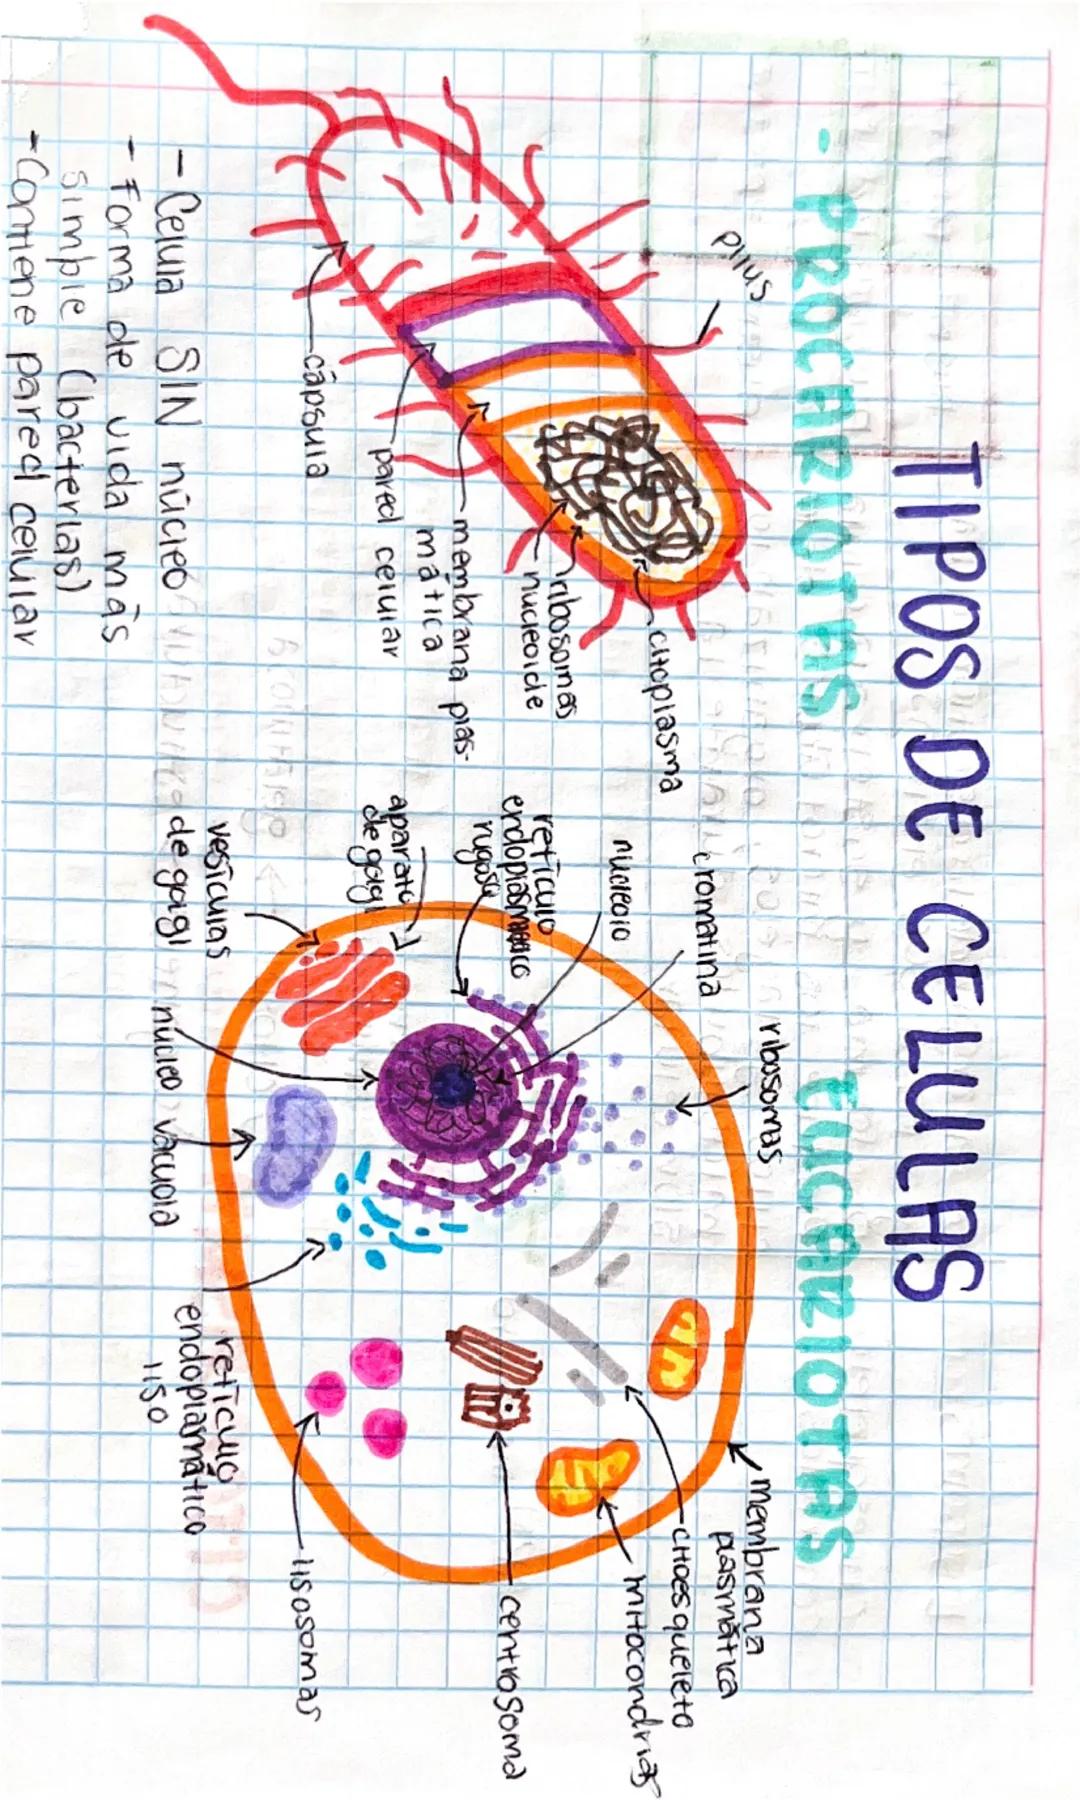 TIPOS DE CELULAS
- PROCARIOTAS
pilus
citoplasma
ribosomas
nucleoide
membrana plas-
mática
pared celular
cápsula
- Celula SIN núcleo
- Forma de vida más
simple (bacterias)
- Contiene pared celular
EUCARIOTAS
ribosomas
cromatina
nucleolo
retículo
endoplasmático
rugoso
aparato
de golgi
vesículas
de golgi
núcleo
vacuola
retículo
endoplasmático
liso
lisosomas
centrosoma
mitocondrias
citoesqueleto
membrana
plasmática